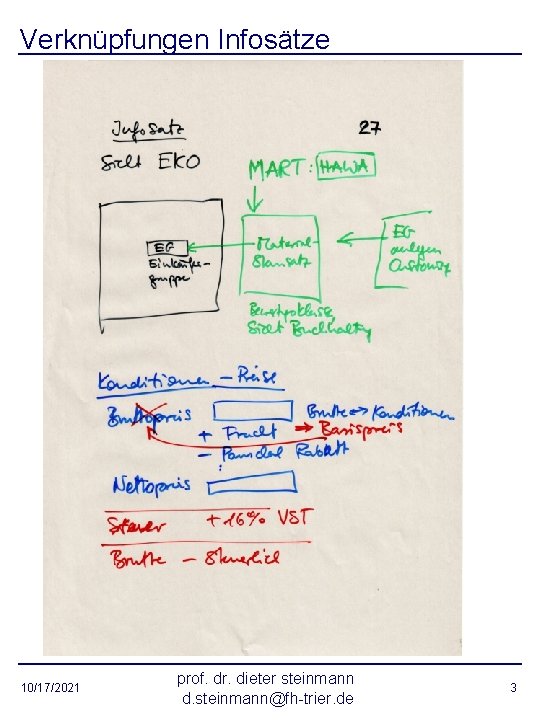 Verknüpfungen Infosätze
Infosatz 27
Sicht EKO
MART: HAWA
EG
Einkäufer-
gruppe
Material-
Stamsatz
EG
anlegen
Customiz
Bewertgsklasse,
Sicht Buchhaltung
Konditionen - Preise
Bruttopreis
Brutto Konditionen
+ Fracht → Basispreis
- Rabatt
Nettopreis
Steuer + 16% VST
Brutto - Steuerlich
10/17/2021
prof. dr. dieter steinmann
d.steinmann@fh-trier.de
3